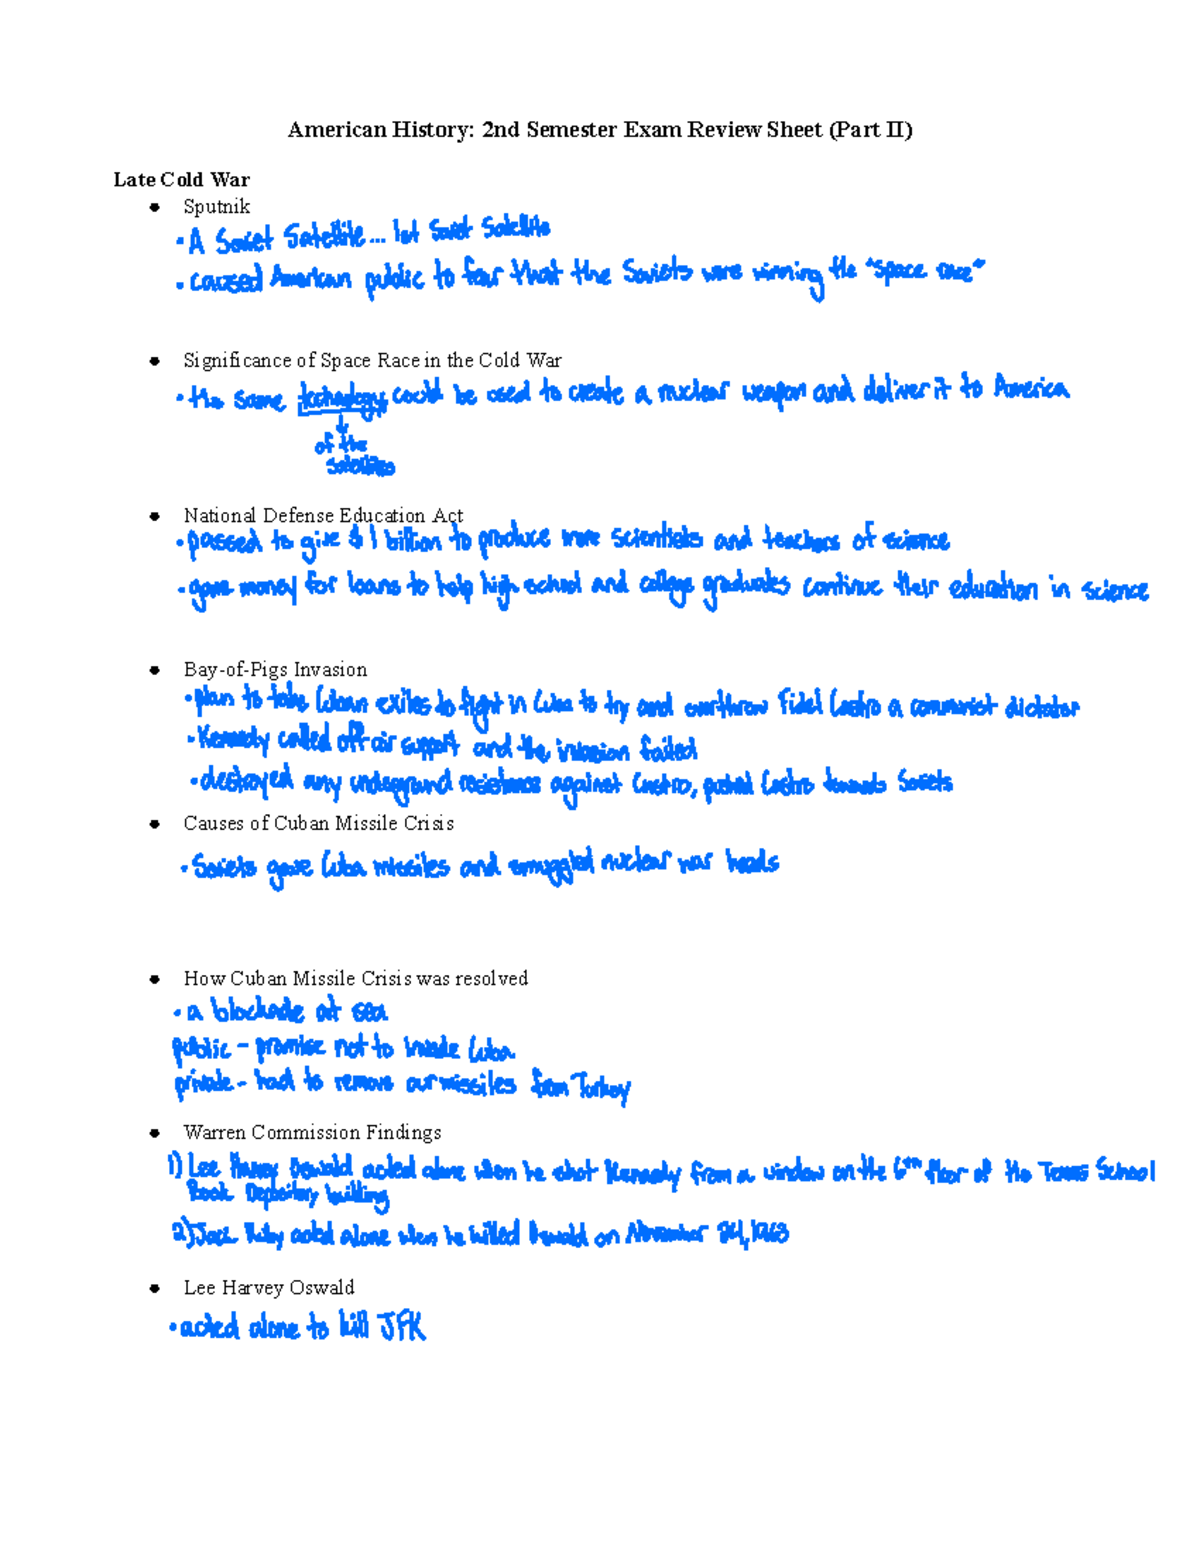 American History: 2nd Semester Exam Review Sheet (Part II)
Late Cold War
● Sputnik
• A Soviet Satellite... 1st Soviet Satellite
• caused American public to fear that the Soviets were winning the "space race"
● Significance of Space Race in the Cold War
• the same technology could be used to create a nuclear weapon and deliver it to America
of the
satellites
● National Defense Education Act
• passed to give $1 billion to produce more scientists and teachers of science
• gave money for loans to help high school and college graduates continue their education in science
● Bay-of-Pigs Invasion
• plan to take Cuban exiles to fight in Cuba to try and overthrow Fidel Castro a communist dictator
• Kennedy called off air support and the invasion failed
• destroyed any underground resistance against Castro, pushed Castro towards Soviets
● Causes of Cuban Missile Crisis
• Soviets gave Cuba missiles and smuggled nuclear war heads
● How Cuban Missile Crisis was resolved
• a blockade at sea
public - promise not to invade Cuba
private - had to remove our missiles from Turkey
● Warren Commission Findings
1) Lee Harvey Oswald acted alone when he shot Kennedy from a window on the 6th floor of the Texas School
Book Depository building
2) Jack Ruby acted alone when he killed Oswald on November 24, 1963
● Lee Harvey Oswald
• acted alone to kill JFK